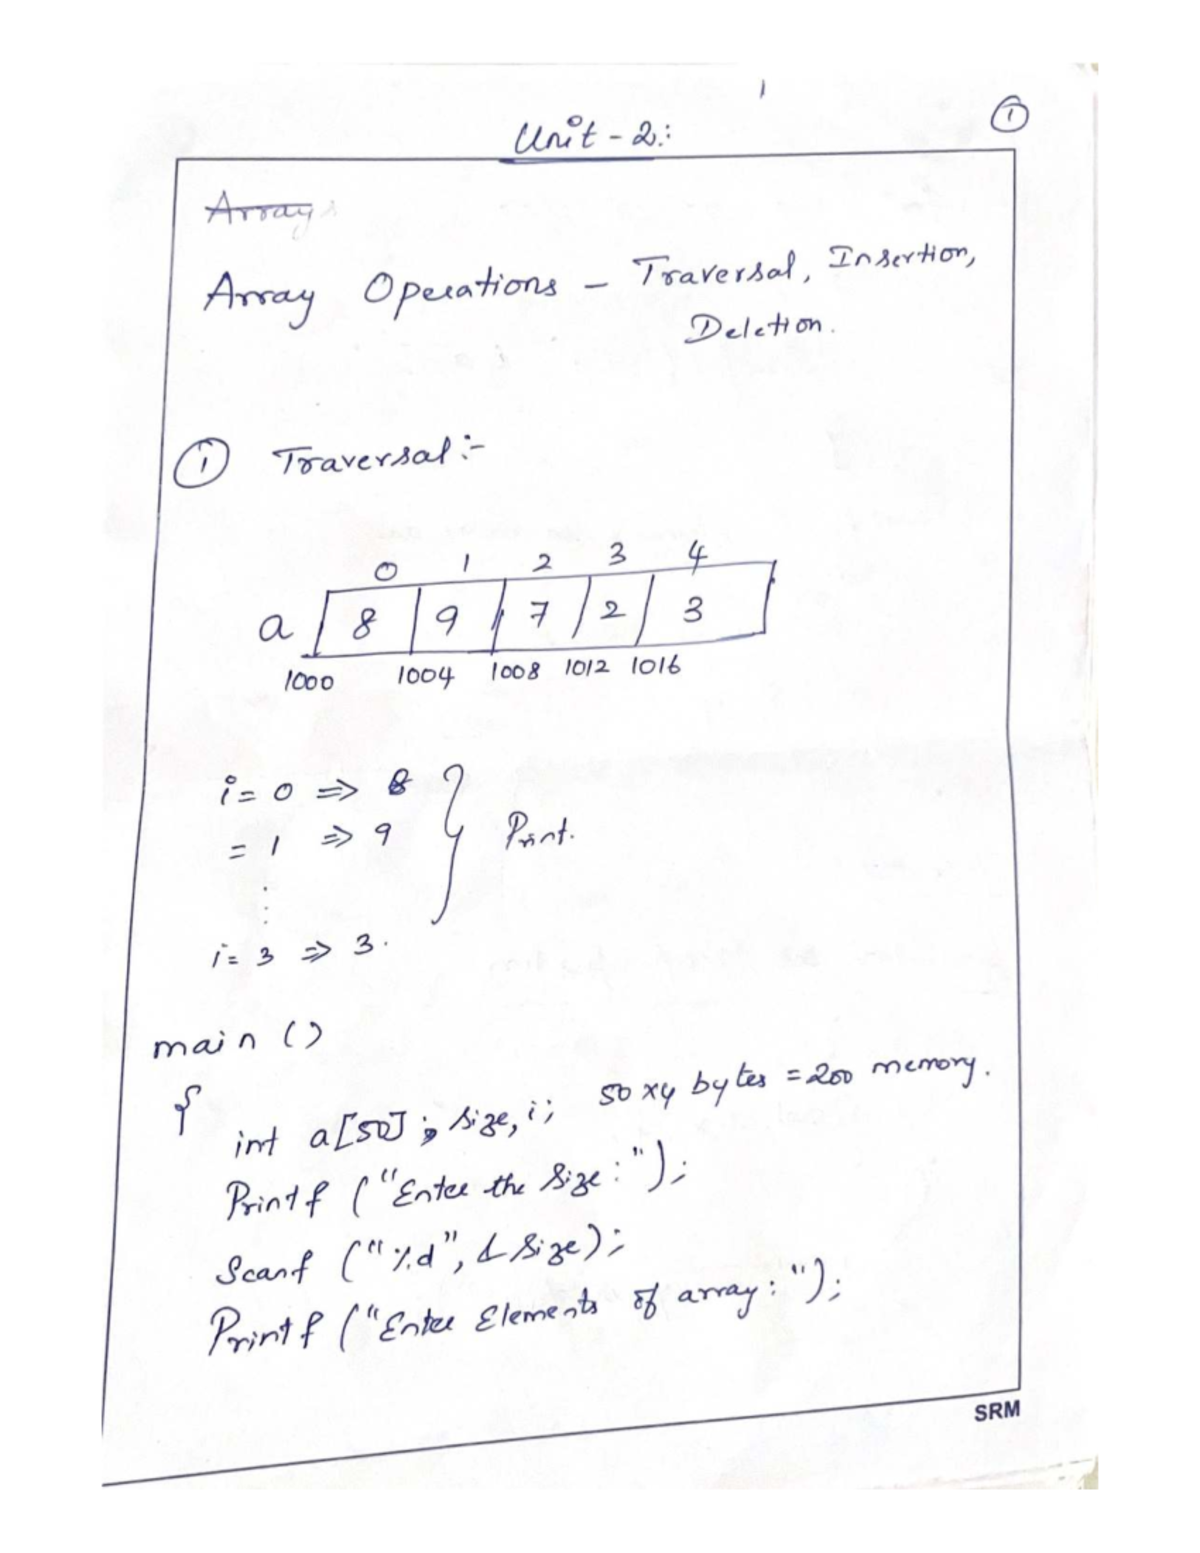 1
Unit - 2:
①
Arrays
Array Operations - Traversal, Insertion,
Deletion.
① Traversal :-
0 1 2 3 4
a 8 9 7 2 3
1000 1004 1008 1012 1016
i = 0 ⇒ 8
= 1 ⇒ 9 } Print.
⋮
i = 3 ⇒ 3.
main ()
{
int a[50]; size, i; 50 x4 bytes = 200 memory.
Printf ("Enter the Size : ");
Scanf ("%d", & Size);
Printf ("Enter Elements of array : ");
SRM